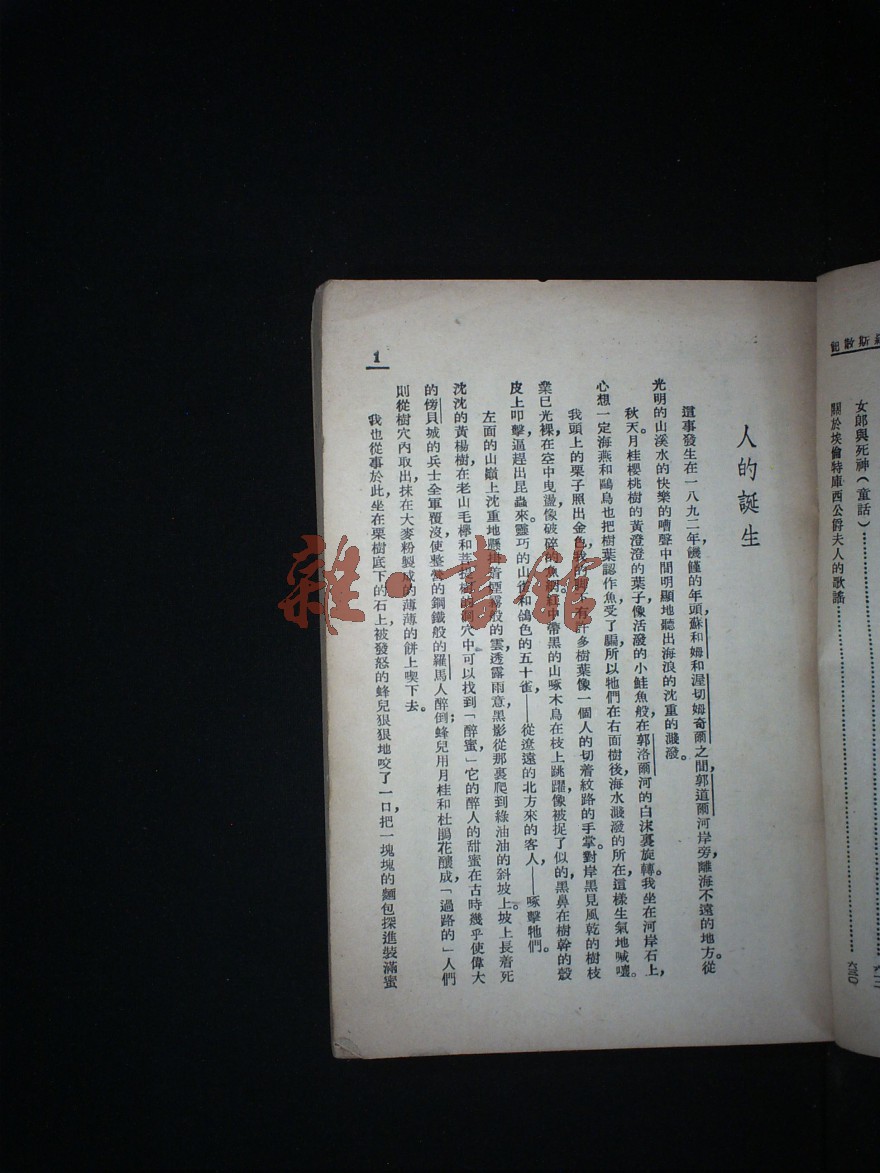 羅斯散記
女郎與死神（童話）……六一二
關於埃倫特庫西公爵夫人的歌謠……六三〇
人的誕生
這事發生在一八九二年，饑饉的年頭，蘇和姆和渥切姆奇爾之間，郭道爾河岸旁，離海不遠的地方。從
光明的山溪水的快樂的嘈聲中間明顯地聽出海浪的沈重的濺潑。
秋天。月桂櫻桃樹的黃澄澄的葉子，像活潑的小鮭魚般在郭洛爾河的白沫裏旋轉。我坐在河岸石上，
心想一定海燕和鷗鳥也把樹葉認作魚受了騙，所以牠們在右面樹後，海水濺潑的所在，這樣生氣地喊嚷。
我頭上的栗子照出金色，我的脚下有許多樹葉像一個人的切着紋路的手掌。對岸黑見風乾的樹枝
業已光裸在空中曳盪，像破碎的魚網，紅中帶黑的山啄木鳥在枝上跳躍，像被捉了似的，黑鼻在樹幹的殼
皮上叩擊，逼趕出昆蟲來。靈巧的山雀和鴿色的五十雀——從遼遠的北方來的客人，——啄擊牠們。
左面的山巔上沈重地懸掛着煙霧般的雲，透露雨意，黑影從那裏爬到綠油油的斜坡上。坡上長着死
沈沈的黃楊樹，在老山毛櫸和菩提樹的洞穴中可以找到「醉蜜，」它的醉人的甜蜜在古時幾乎使偉大
的傍貝城的兵士全軍覆沒，使整營的鋼鐵般的羅馬人醉倒；蜂兒用月桂和杜鵑花釀成，「過路的」人們
則從樹穴內取出，抹在大麥粉製成的薄薄的餅上喫下去。
我也從事於此，坐在栗樹底下的石上，被發怒的蜂兒狠狠地咬了一口，把一塊塊的麵包探進裝滿蜜
1
雜書館